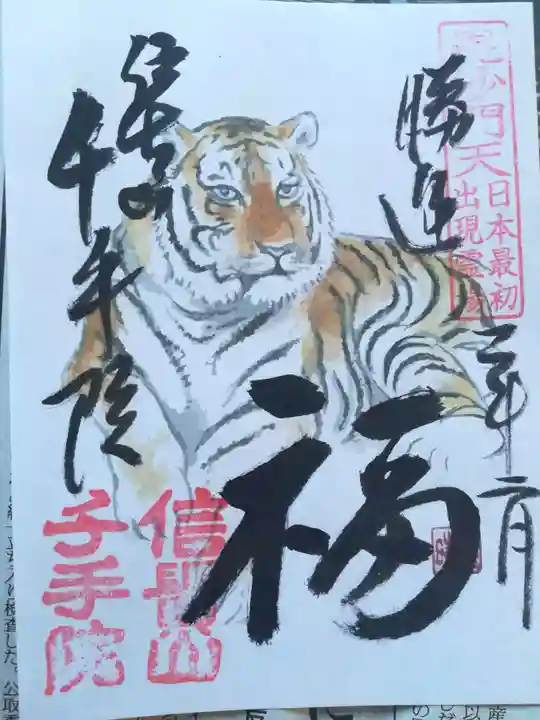 毘沙門天
日本最初
出現霊場
勝運
二年二月
福
信貴山
千手院
信貴山
千手院